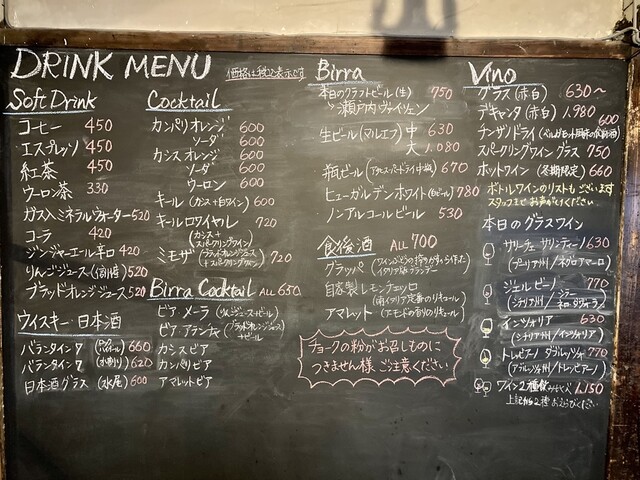 DRINK MENU
価格は税込表示です
Soft Drink
コーヒー 450
エスプレッソ 450
紅茶 450
ウーロン茶 330
ガス入ミネラルウォーター 520
コーラ 420
ジンジャーエール辛口 420
りんごジュース 520
ブラッドオレンジジュース 520
ウイスキー・日本酒
バランタイン7 (ハイボール) 660
バランタイン7 (水割り) 620
日本酒グラス (水尾) 600
Cocktail
カンパリオレンジ 600
ソーダ 600
カシスオレンジ 600
ソーダ 600
ウーロン 600
キール (カシス+白ワイン) 600
キールロワイヤル 720
(カシス+スパークリングワイン)
ミモザ (ブラッドオレンジジュース+スパークリングワイン) 720
Birra Cocktail ALL 650
ビア・メーラ (りんごジュース+ビール)
ビア・アランチャ (ブラッドオレンジジュース+ビール)
カシスビア
カンパリビア
アマレットビア
Birra
本日のクラフトビール(生) 750
瀬戸内ヴァイツェン
生ビール(マルエフ) 中 630
大 1.080
瓶ビール (アサヒスーパードライ中瓶) 670
ヒューガルデンホワイト(白ビール) 780
ノンアルコールビール 530
食後酒 ALL 700
グラッパ (ワインぶどうの搾りかすから作った
イタリア版ブランデー)
自家製レモンチェッロ
(南イタリア定番のリキュール)
アマレット (アモンドの香りのリキュール)
チョークの粉がお召しものに
つきません様、ご注意ください
Vino
グラス (赤白) 630〜
デキャンタ (赤白) 1.980
チンザノドライ 600
スパークリングワイン グラス 750
ホットワイン (冬期限定) 660
ボトルワインのリストもございます
スタッフまでお声がけください
本日のグラスワイン
サリーチェ サレンティーノ 630
(プーリア州/ネグロアマーロ)
ジェルビーノ 770
(シチリア州/シラー ネロ・ダヴォラ)
インツォリア 630
(シチリア州/インツォリア)
トレッビアーノ ダブルッツォ 770
(アブルッツォ州/トレッビアーノ)
ワイン2種飲みくらべ 1.150
上記から2種お選びください